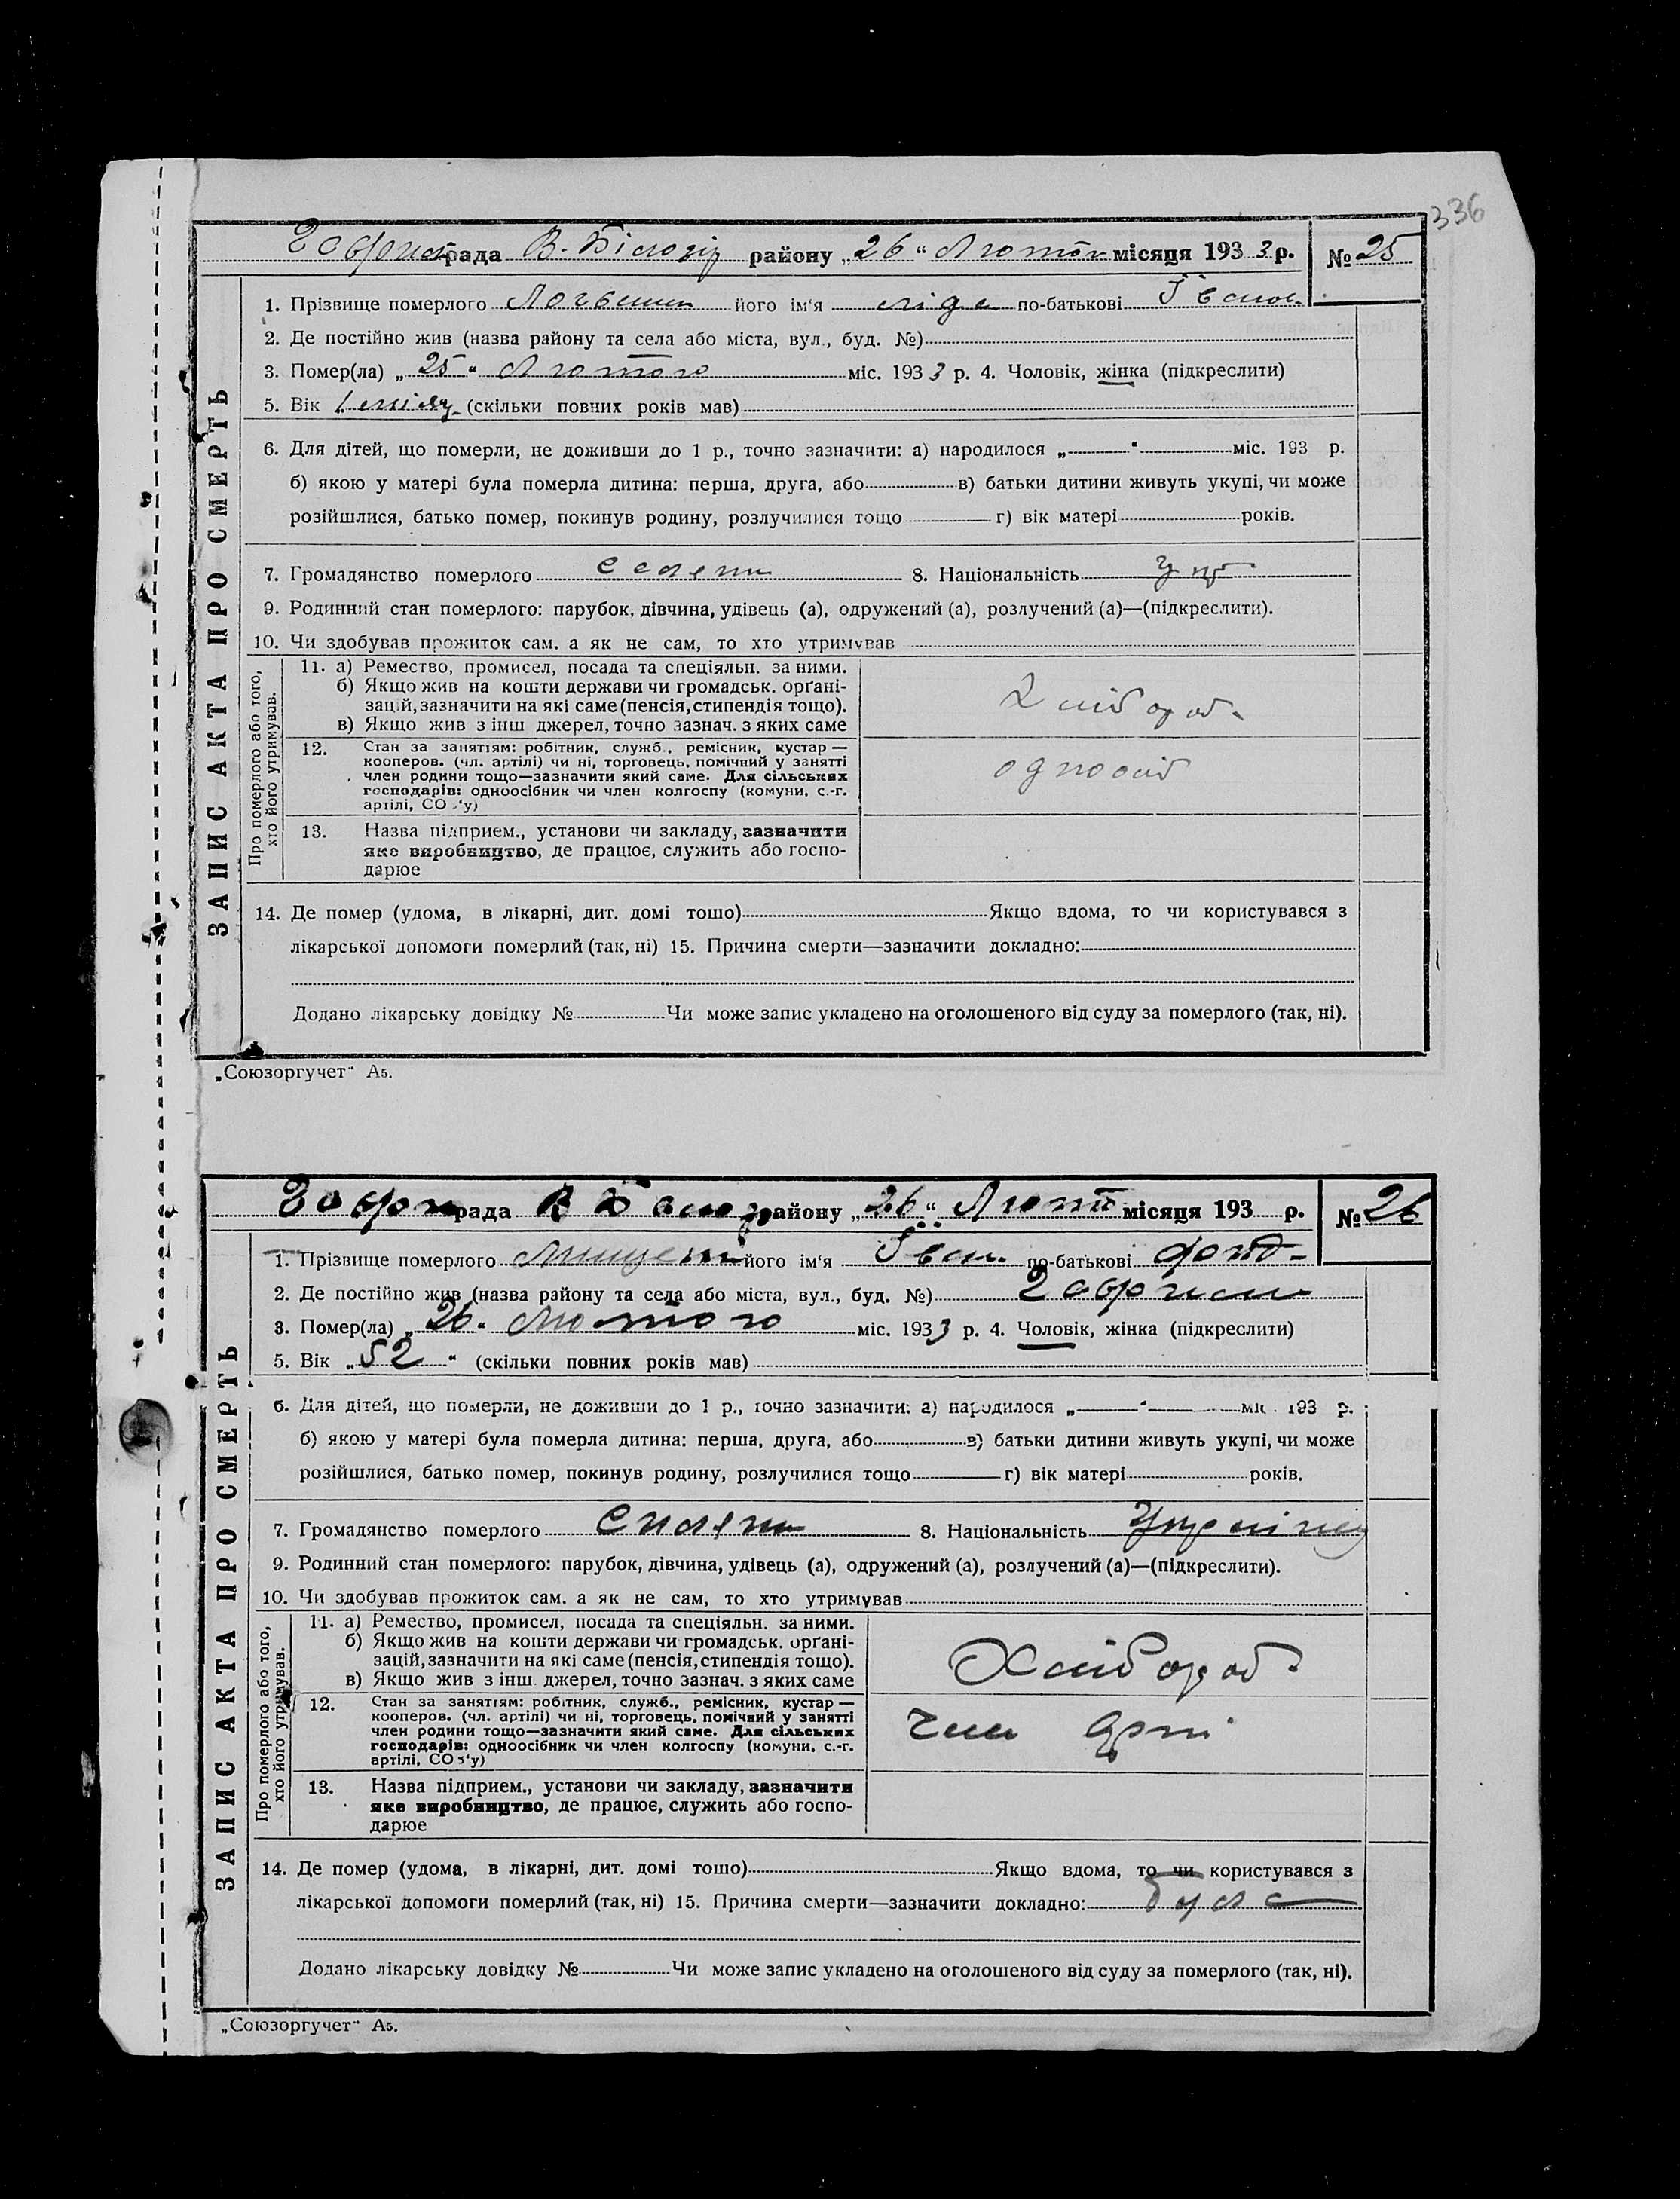 336
рада В. Білозір району „26“ Лютого місяця 193 3 р. № 25
1. Прізвище померлого Логвин його ім'я Ліда по-батькові Іванов.
2. Де постійно жив (назва району та села або міста, вул., буд. №)
3. Помер(ла) „25“ Лютого міс. 193 3 р. 4. Чоловік, жінка (підкреслити)
5. Вік 1 (скільки повних років мав)
6. Для дітей, що померли, не доживши до 1 р., точно зазначити: а) народилося „ “ міс. 193 р.
б) якою у матері була померла дитина: перша, друга, або в) батьки дитини живуть укупі, чи може
розійшлися, батько помер, покинув родину, розлучилися тощо г) вік матері років.
7. Громадянство померлого 8. Національність укр
9. Родинний стан померлого: парубок, дівчина, удівець (а), одружений (а), розлучений (а)—(підкреслити).
10. Чи здобував прожиток сам. а як не сам, то хто утримував
11. а) Ремество, промисел, посада та спеціяльн. за ними.
б) Якщо жив на кошти держави чи громадськ. орґані-
зацій, зазначити на які саме (пенсія, стипендія тощо).
в) Якщо жив з інш джерел, точно зазнач. з яких саме
Хлібороб.
12. Стан за заняттям: робітник, служб., ремісник, кустар —
кооперов. (чл. артілі) чи ні, торговець, помічний у занятті
член родини тощо—зазначити який саме. Для сільських
господарів: одноосібник чи член колгоспу (комуни, с.-г.
артілі, СОЗ'у)
одноосіб
13. Назва підприєм., установи чи закладу, зазначити
яке виробництво, де працює, служить або госпо-
дарює
Про померлого або того,
хто його утримував.
14. Де помер (удома, в лікарні, дит. домі тощо) Якщо вдома, то чи користувався з
лікарської допомоги померлий (так, ні) 15. Причина смерти—зазначити докладно:
Додано лікарську довідку № Чи може запис укладено на оголошеного від суду за померлого (так, ні).
ЗАПИС АКТА ПРО СМЕРТЬ
„Союзоргучет“ А5.
рада В Білоз району „26“ Лютого місяця 193 р. № 26
1. Прізвище померлого його ім'я Іван по-батькові
2. Де постійно жив (назва району та села або міста, вул., буд. №)
3. Помер(ла) „26“ Лютого міс. 193 3 р. 4. Чоловік, жінка (підкреслити)
5. Вік „52“ (скільки повних років мав)
6. Для дітей, що померли, не доживши до 1 р., точно зазначити: а) народилося „ “ міс. 193 р.
б) якою у матері була померла дитина: перша, друга, або в) батьки дитини живуть укупі, чи може
розійшлися, батько помер, покинув родину, розлучилися тощо г) вік матері років.
7. Громадянство померлого 8. Національність Українец
9. Родинний стан померлого: парубок, дівчина, удівець (а), одружений (а), розлучений (а)—(підкреслити).
10. Чи здобував прожиток сам. а як не сам, то хто утримував
11. а) Ремество, промисел, посада та спеціяльн. за ними.
б) Якщо жив на кошти держави чи громадськ. орґані-
зацій, зазначити на які саме (пенсія, стипендія тощо).
в) Якщо жив з інш. джерел, точно зазнач. з яких саме
Хлібороб.
12. Стан за заняттям: робітник, служб., ремісник, кустар —
кооперов. (чл. артілі) чи ні, торговець, помічний у занятті
член родини тощо—зазначити який саме. Для сільських
господарів: одноосібник чи член колгоспу (комуни, с.-г.
артілі, СОЗ'у)
член Арті
13. Назва підприєм., установи чи закладу, зазначити
яке виробництво, де працює, служить або госпо-
дарює
Про померлого або того,
хто його утримував.
14. Де помер (удома, в лікарні, дит. домі тощо) Якщо вдома, то чи користувався з
лікарської допомоги померлий (так, ні) 15. Причина смерти—зазначити докладно:
Додано лікарську довідку № Чи може запис укладено на оголошеного від суду за померлого (так, ні).
ЗАПИС АКТА ПРО СМЕРТЬ
„Союзоргучет“ А5.